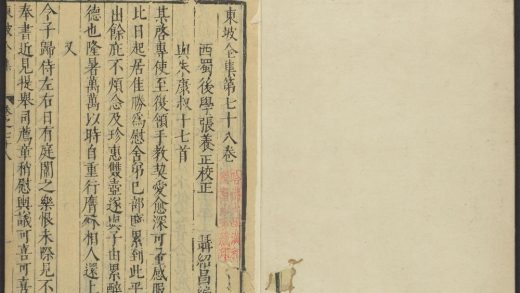 東坡全集第七十八卷
西蜀後學張養正校正 聶紹昌
與朱康叔十七首
某啓專使至復領手教契愛愈深可量感服
比日起居佳勝爲慰舍弟已部賤累到此平
出餘庇不煩念及珍惠雙壺遂與子由累醉
德也隆暑萬萬以時自重行膺相人還上
又
今子歸侍左右日有庭闈之樂恨未際見不
奉書近見提舉司薦章稍慰輿議可喜可喜
東坡全集 卷之七十八